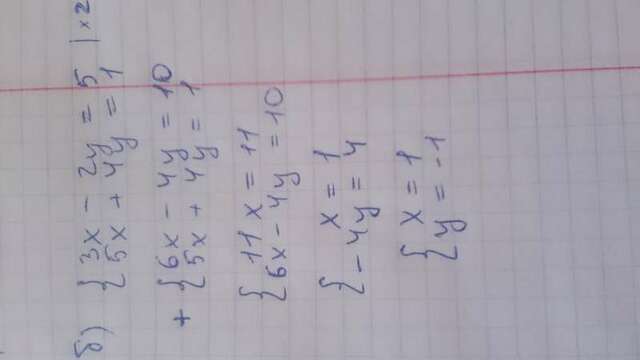 б) { 3x - 2y = 5 | ×2
{ 5x + 4y = 1
+ { 6x - 4y = 10
{ 5x + 4y = 1
{ 11x = 11
{ 6x - 4y = 10
{ x = 1
{ - 4y = 4
{ x = 1
{ y = -1